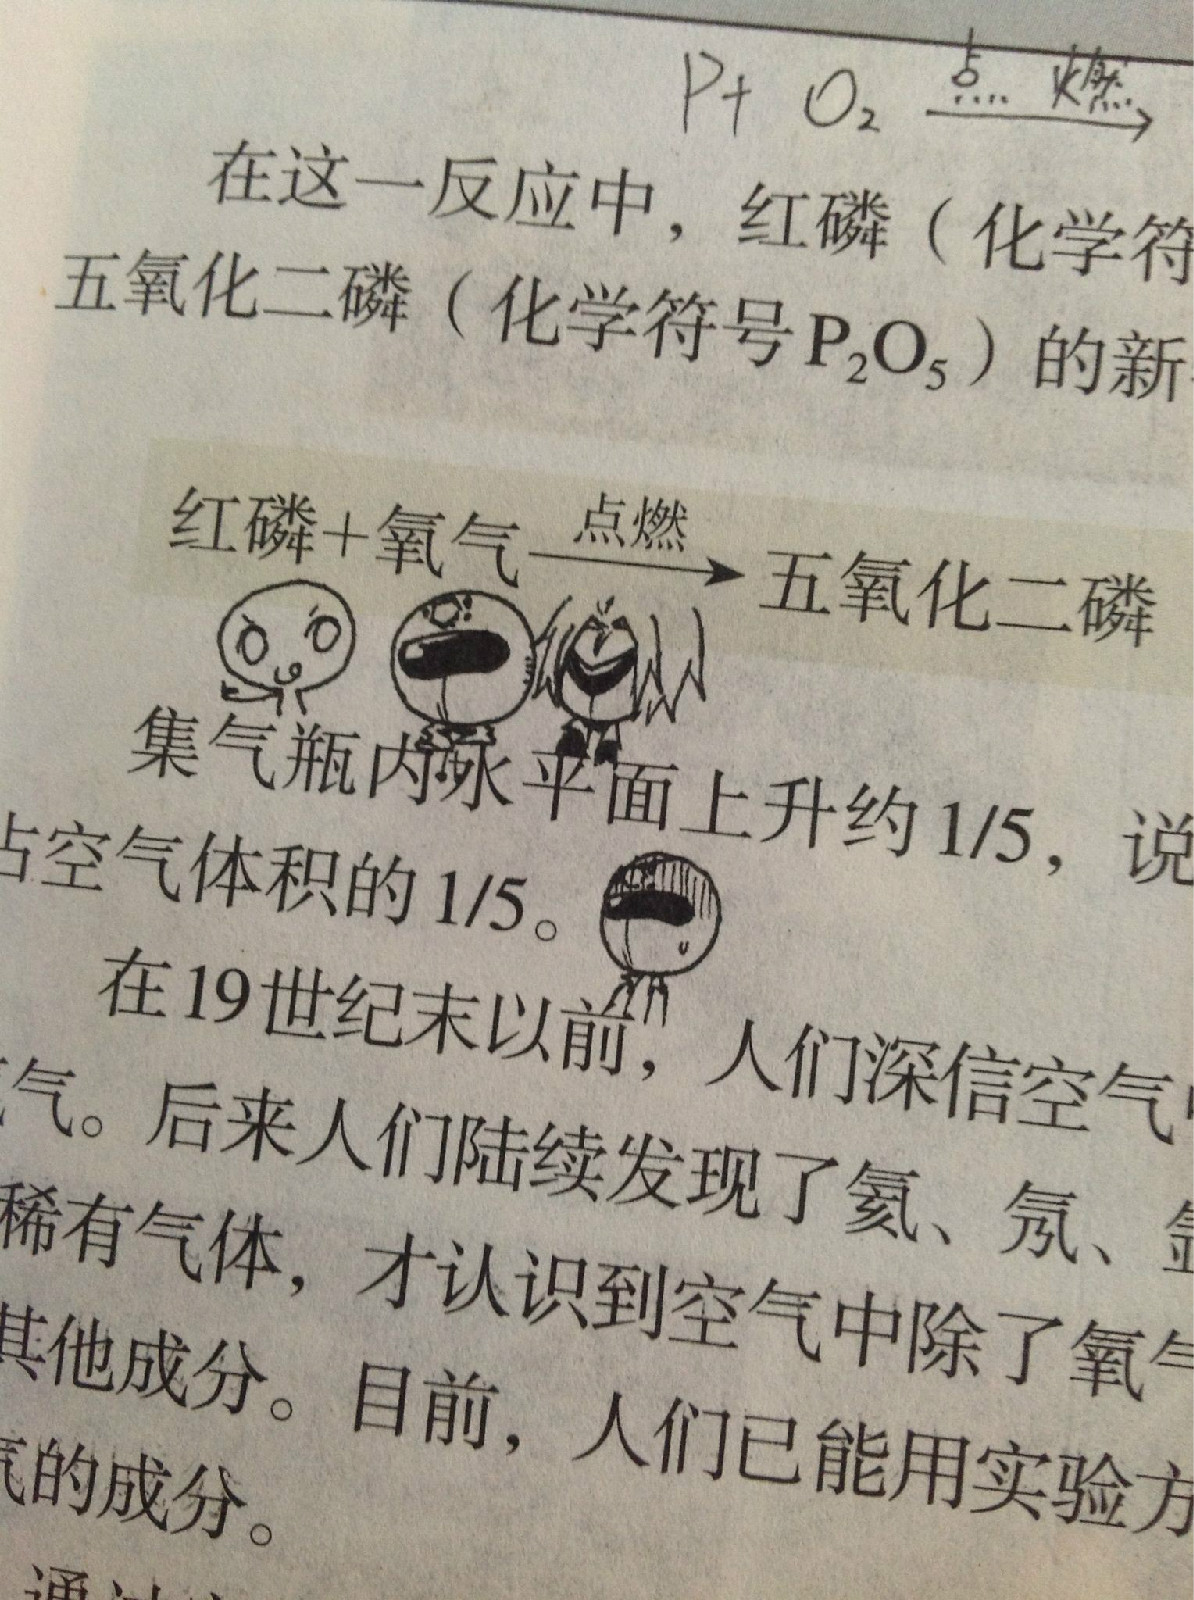 P+ O₂ 点燃→
在这一反应中，红磷（化学符
五氧化二磷（化学符号P₂O₅）的新
红磷+氧气 点燃→ 五氧化二磷
集气瓶内水平面上升约1/5，说
占空气体积的1/5。
在19世纪末以前，人们深信空气
气。后来人们陆续发现了氦、氖、
稀有气体，才认识到空气中除了氧气
其他成分。目前，人们已能用实验方
气的成分。
通过